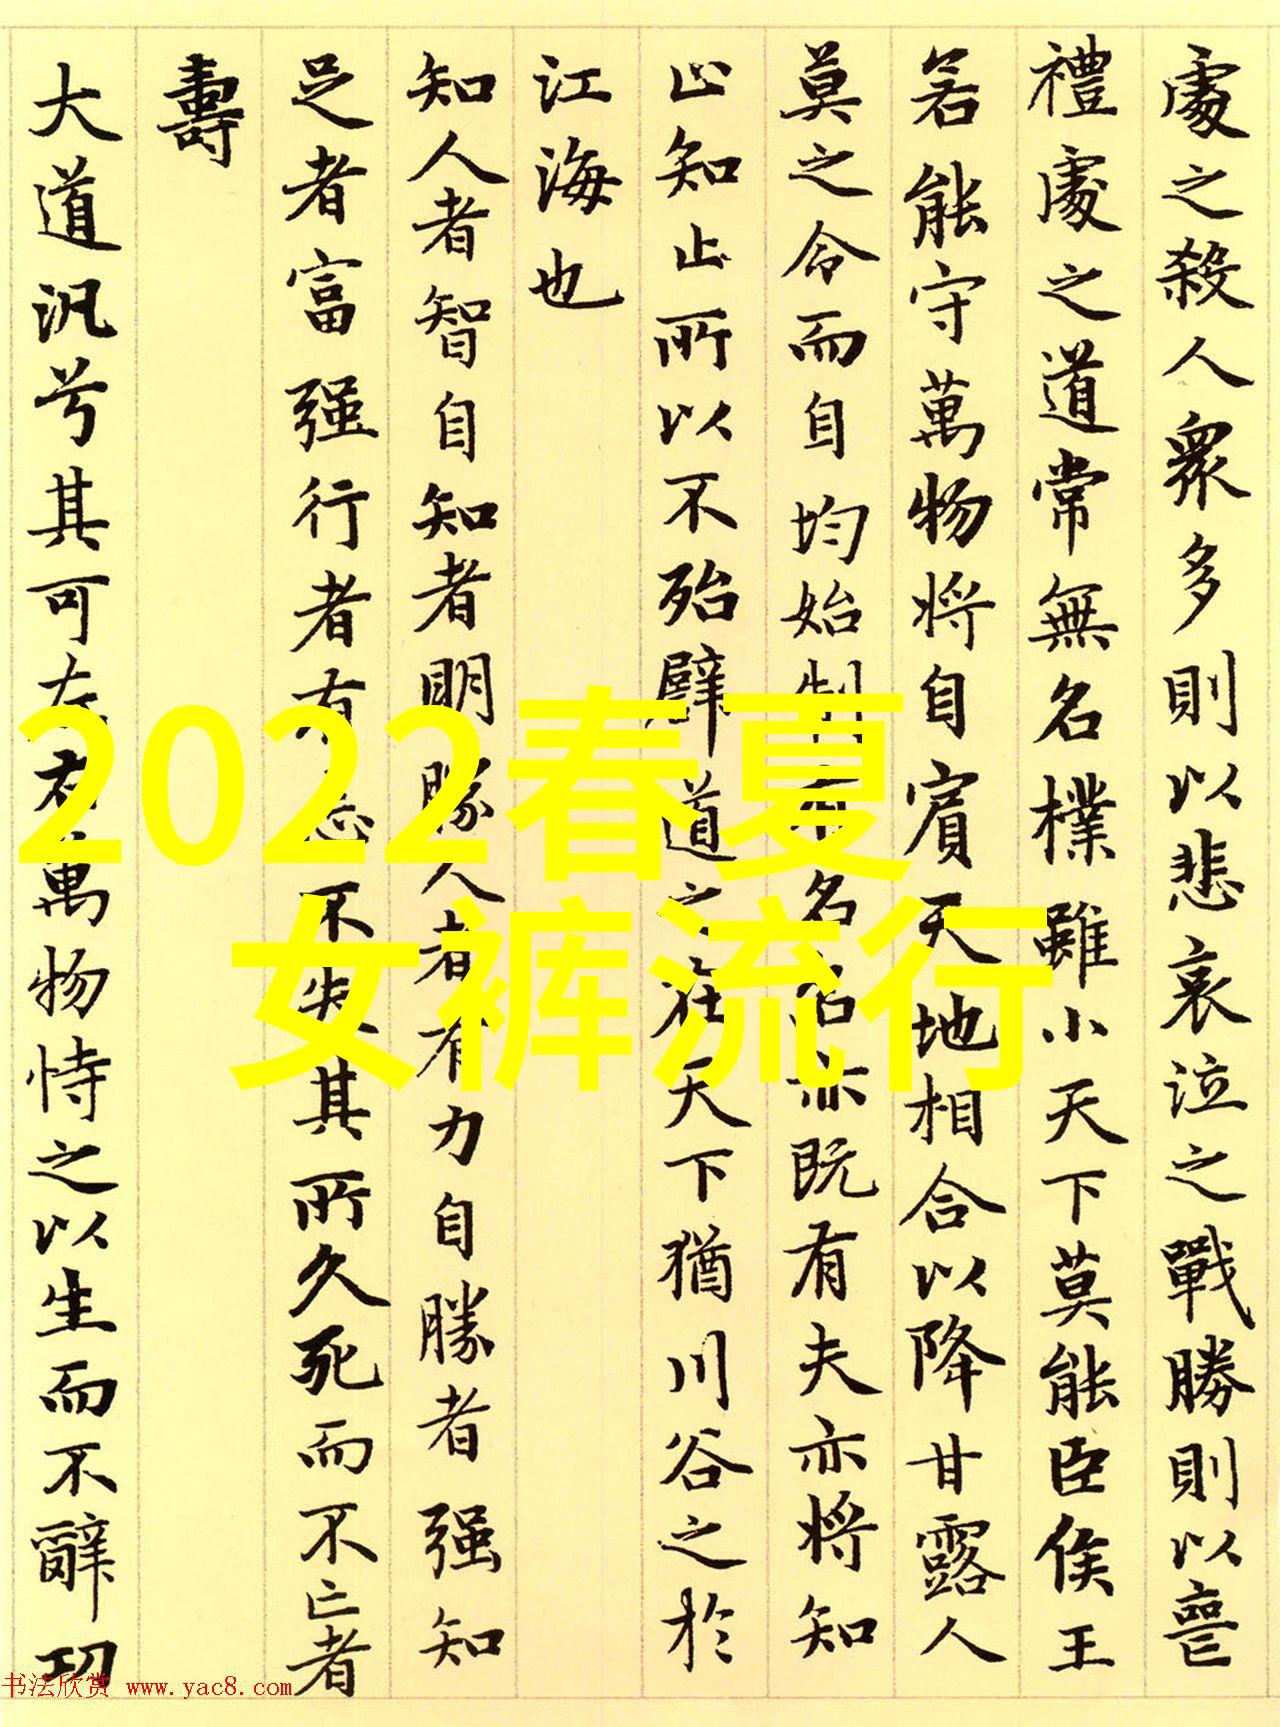 處之殺人眾多則以悲哀泣之戰勝則以喪
禮處之道常無名樸雖小天下莫能臣侯王
若能守萬物將自賓天地相合以降甘露人
莫之令而自均始制有名名亦既有夫亦將知
止知止所以不殆譬道之在天下猶川谷之於
江海也
知人者智自知者明勝人者有力自勝者强知
足者富强行者有志不失其所久死而不亡者
壽
大道汎兮其可左右萬物恃之以生而不辭功
2022春夏
女裤流行
书法欣赏 www.yac8.com